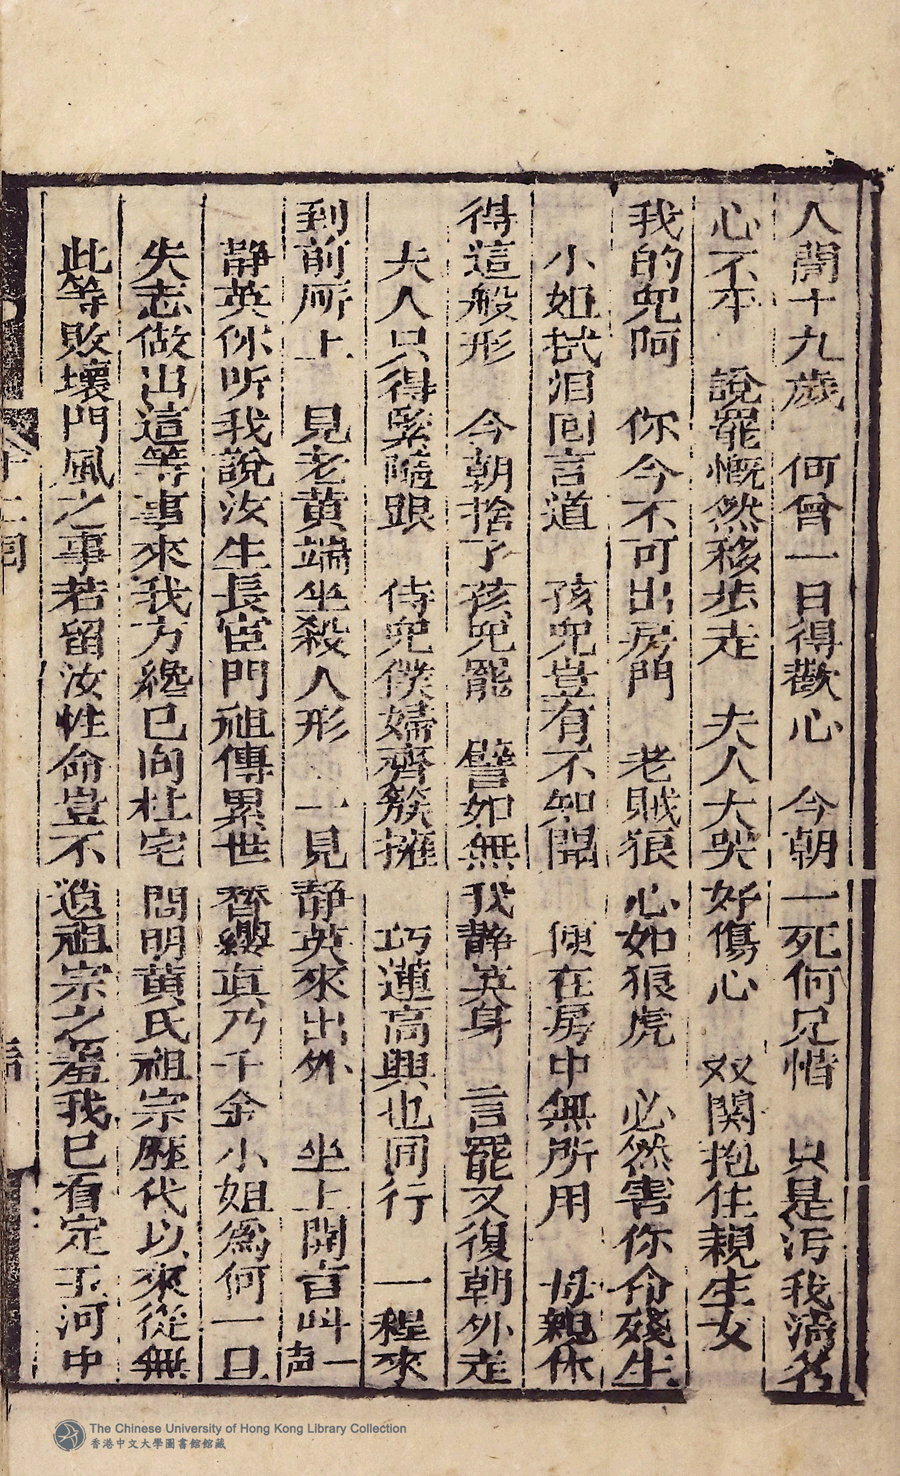 人間十九歲　何曾一日得歡心　今朝一死何足惜　只是污我淸名
心不平　說罷慨然移步走　夫人大哭好傷心　双関抱住親生女
我的兒阿　你今不可出房門　老賊狼心如狼虎　必然害你命殘生
小姐拭泪回言道　孩兒豈有不知聞　便在房中無所用　母親休
得這般形　今朝捨了孩兒罷　譬如無我靜英身　言罷又復朝外走
夫人只得緊隨跟　侍兒僕婦齊簇擁　巧蓮高興也同行　一程來
到前㕔上　見老黄端坐殺人形　一見靜英來出外　坐上開言呌一声
靜英你听我說汝生長宦門祖傳累世簪纓真乃千金小姐爲何一旦
失志做出這等事來我方纔已向杜宅問明黄氏祖宗歷代以來從無
此等敗壞門風之事若留汝性命豈不遺祖宗之羞我已有定玉河中
十二囘
The Chinese University of Hong Kong Library Collection
香港中文大學圖書館館藏